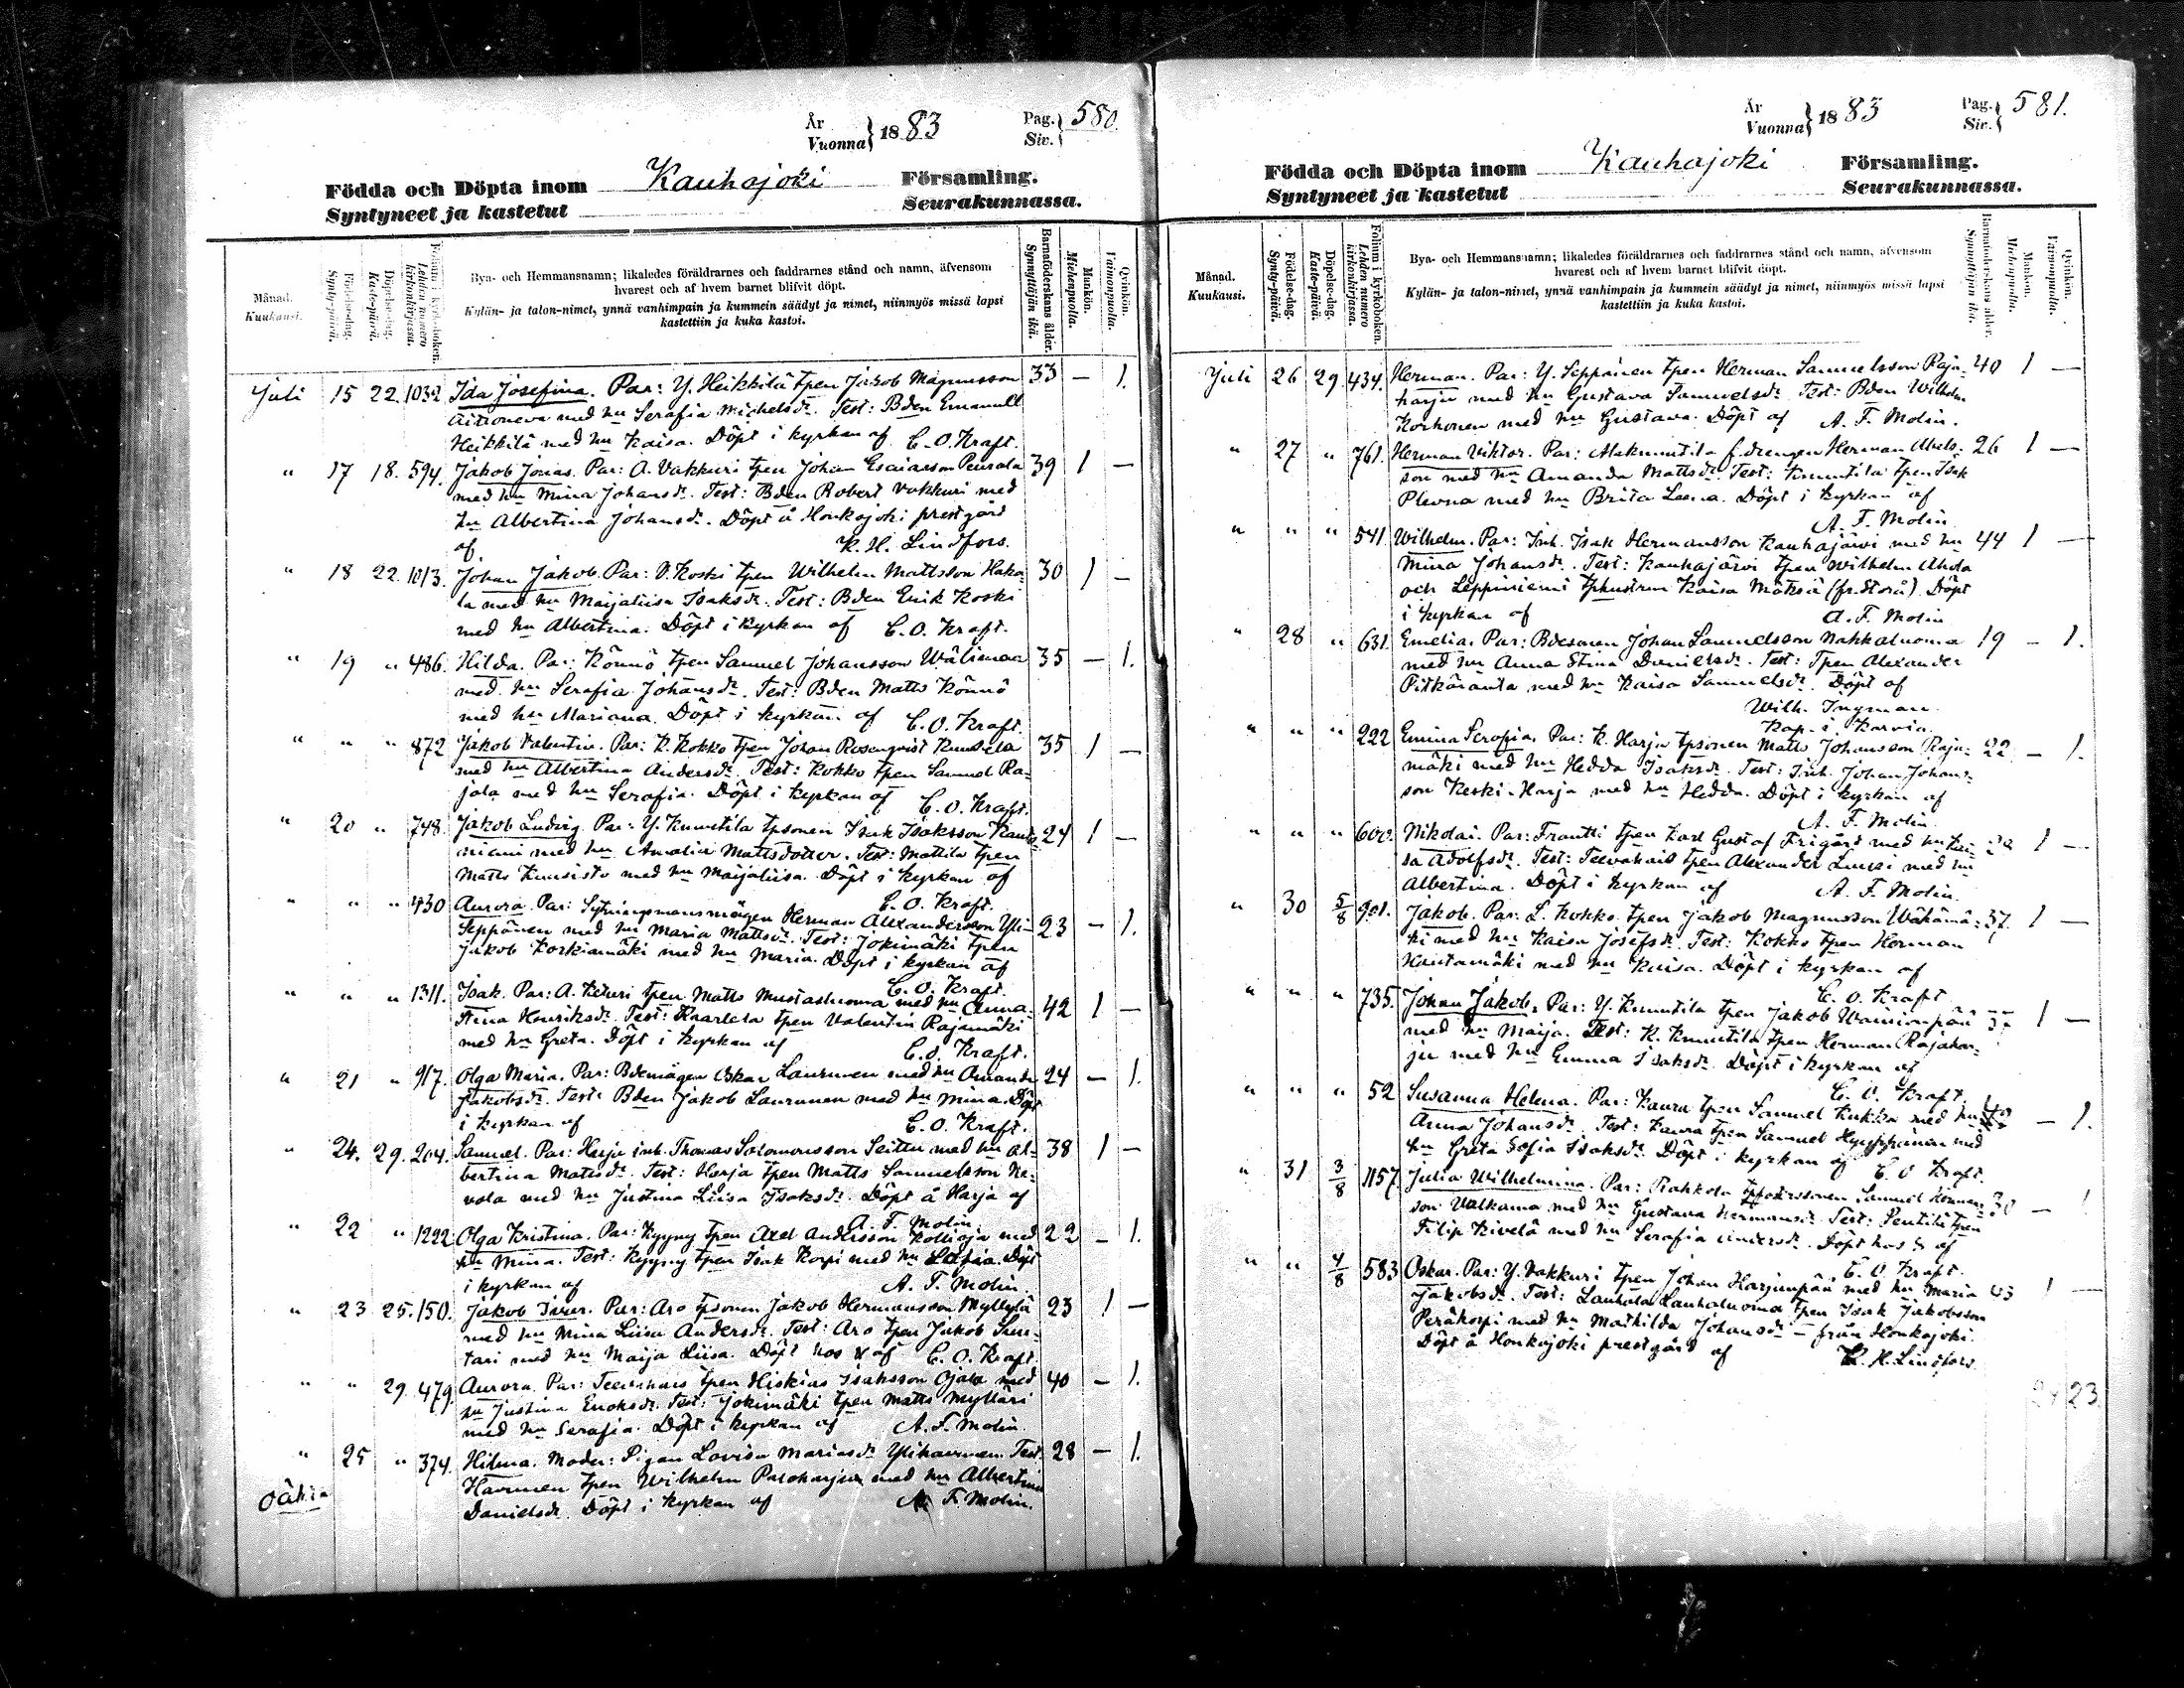 År
Vuonna } 1883
Pag.
Siv. } 580.
Födda och Döpta inom Kauhajoki Församling.
Syntyneet ja kastetut Seurakunnassa.
Månad.
Kuukausi.
Födelse-dag.
Synty-päivä.
Döpelse-dag.
Kaste-päivä.
Folium i kyrkoboken.
Lehden numero kirkonkirjassa.
Bya- och Hemmansnamn; likaledes föräldrarnes och faddrarnes stånd och namn, äfvensom
hvarest och af hvem barnet blifvit döpt.
Kylän- ja talon-nimet, ynnä vanhimpain ja kummein säädyt ja nimet, niinmyös missä lapsi
kastettiin ja kuka kastoi.
Barnaföderskans ålder.
Synnyttäjän ikä.
Mankön.
Miehenpuolia.
Qvinkön.
Vaimonpuolia.
Juli 15 22. 1032 Ida Josefina. Par: Y. Heikkilä tpen Jakob Magnusson 33 — 1.
Aitroneva med hu Serafia Michelsdr. Test: Bden Emanuel
Heikkilä med hu Kaisa. Döpt i kyrkan af C. O. Kraft.
" 17 18. 594. Jakob Jonas. Par: A. Vakkuri tpen Johan Esaiasson Peurala 39 1 —
med hu Mina Johansdr. Test: Bden Robert Vakkuri med
hu Albertina Johansdr. Döpt å Honkajoki prestgård
af K. H. Lindfors.
" 18 22. 1013. Johan Jakob. Par: V. Koski tpen Wilhelm Mattsson Hako- 30 1 —
la med hu Maijaliisa Isaksdr. Test: Bden Erik Koski
med hu Albertina. Döpt i kyrkan af C. O. Kraft.
" 19 " 486. Hilda. Par: Könnö tpen Samuel Johansson Wälimaa 35 — 1.
med hu Serafia Johansdr. Test: Bden Matts Könnö
med hu Mariana. Döpt i kyrkan af C. O. Kraft.
" " " 872 Jakob Valentin. Par: K. Kokko tpen Johan Rosenqvist 35 1 —
med hu Albertina Andersdr. Test: Kokko tpen Samuel Ra-
jala med hu Serafia. Döpt i kyrkan af C. O. Kraft.
" 20 " 748. Jakob Ludvig. Par: Y. Knuutila tpsonen Isak Isaksson 24 1 —
niemi med hu Amalia Mattsdotter. Test: Mattila tpen
Matts Kuusisto med hu Maijaliisa. Döpt i kyrkan af
C. O. Kraft.
" " " 430 Aurora. Par: Sytningsmansmågen Herman Alexandersson Yli- 23 — 1.
Seppänen med hu Maria Mattsdr. Test: Jokimäki tpen
Jakob Korkiamäki med hu Maria. Döpt i kyrkan af
C. O. Kraft.
" " " 1311. Isak. Par: A. Keturi tpen Matts Mustasluoma med hu Anna- 42 1 —
Stina Henriksdr. Test: Knarlela tpen Valentin Rajamäki
med hu Greta. Döpt i kyrkan af C. O. Kraft.
" 21 " 917. Olga Maria. Par: Bdemågen Oskar Laurunen med hu Amanda 24 — 1.
Jakobsdr. Test: Bden Jakob Laurunen med hu Mina. Döpt
i kyrkan af C. O. Kraft.
" 24. 29. 204. Samuel. Par: Harja inh. Thomas Salomonsson Seittu med hu Al- 38 1 —
bertina Matsdr. Test: Harja tpen Matts Samuelsson Ne-
vala med hu Justina Liisa Isaksdr. Döpt å Harja af
A. F. Molin.
" 22 " 1222 Olga Kristina. Par: Kyyny tpen Axel Andersson Kollioja med 22 — 1.
hu Mina. Test: Kyyny tpen Isak Korpi med hu Döpt
i kyrkan af A. F. Molin.
" 23 25. 150. Jakob Ivar. Par: Aro tpsonen Jakob Hermansson Myllylä 23 1 —
med hu Mina Liisa Andersdr. Test: Aro tpen Jakob Sun-
tari med hu Maija Liisa. Döpt hos & af C. O. Kraft.
" " 29. 479. Aurora. Par: Teevahais tpen Hiskias Isaksson Ojala med 40 — 1.
hu Justina Enoksdr. Test: Jokimäki tpen Matts Mylläri
med hu Serafia. Döpt i kyrkan af A. F. Molin.
" 25 " 374. Hilma. Moder: Pigan Lovisa Mariasdr. Ylihavunen. Test: 28 — 1.
Havunen tpen Wilhelm Paloharju med hu Albertina
Danielsdr. Döpt i kyrkan af A. F. Molin.
År
Vuonna } 1883
Pag.
Siv. } 581.
Födda och Döpta inom Kauhajoki Församling.
Syntyneet ja kastetut Seurakunnassa.
Månad.
Kuukausi.
Födelse-dag.
Synty-päivä.
Döpelse-dag.
Kaste-päivä.
Folium i kyrkoboken.
Lehden numero kirkonkirjassa.
Bya- och Hemmansnamn; likaledes föräldrarnes och faddrarnes stånd och namn, äfvensom
hvarest och af hvem barnet blifvit döpt.
Kylän- ja talon-nimet, ynnä vanhimpain ja kummein säädyt ja nimet, niinmyös missä lapsi
kastettiin ja kuka kastoi.
Barnaföderskans ålder.
Synnyttäjän ikä.
Mankön.
Miehenpuolia.
Qvinkön.
Vaimonpuolia.
Juli 26 29. 434. Herman. Par: Y. Seppänen tpen Herman Samuelsson Raja- 40 1 —
harju med hu Gustava Samuelsdr. Test: Bden Wilhelm
Korhonen med hu Gustava. Döpt af A. F. Molin.
" 27 " 761. Herman Viktor. Par: Alaknuutila f. drengen Herman Abels- 26 1 —
son med hu Amanda Mattsdr. Test: Knuutila tpen Isak
Plevna med hu Brita Leena. Döpt i kyrkan af
A. F. Molin
" " " 541 Wilhelm. Par: Inh. Isak Hermansson Kauhajärvi med hu 44 1 —
Mina Johansdr. Test: Kauhajärvi tpen Wilhelm Ahola
och Leppiniemi tphustrun Kaisa Mäksä (fr. Storå). Döpt
i kyrkan af A. F. Molin
" 28 " 631. Emelia. Par: Bdesonen Johan Samuelsson Nahkaluoma 19 — 1.
med hu Anna Stina Danielsdr. Test: Tpen Alexander
Pitkäranta med hu Kaisa Samuelsdr. Döpt af
Wilh. Ingman.
Kap. i Karvia.
" " " 222 Emina Serafia. Par: K. Harja tpsonen Matts Johansson Raja- 22 — 1.
mäki med hu Hedda Isaksdr. Test: Inh. Johan Johans-
son Keski-Harja med hu Hedda. Döpt i kyrkan af
A. F. Molin
" " " 600. Nikolai. Par: Frantti tpen Karl Gustaf Frigård med hu Kai- 1 —
sa Adolfsdr. Test: Teevahais tpen Alexander med hu
Albertina. Döpt i kyrkan af A. F. Molin.
" 30 5/8 901. Jakob. Par: L. Kokko tpen Jakob Magnusson Wähämä- 37. 1 —
ki med hu Kaisa Josefsdr. Test: Kokko tpen Herman
Hautamäki med hu Kaisa. Döpt i kyrkan af
C. O. Kraft
" " " 735. Johan Jakob. Par: Y. Knuutila tpen Jakob Wainionpää 1 —
med hu Maija. Test: K. Knuutila tpen Herman Rajahar-
ju med hu Emma Isaksdr. Döpt i kyrkan af
C. O. Kraft.
" " " 52 Susanna Helena. Par: Kaura tpen Samuel Kukka med hu — 1.
Anna Johansdr. Test: Kaura tpen Samuel Hyyppänen med
hu Greta Sofia Isaksdr. Döpt i kyrkan af C. O. Kraft.
" 31 3/8 1157. Julia Wilhelmina. Par: Rahkola Samuel Herman- 30 — 1
son Valkama med hu Gustava Hermansdr. Test: Pentilä tpen
Filip Kivelä med hu Serafia Andersdr. Döpt hos & af
C. O. Kraft.
" " 4/8 583 Oskar. Par: Y. Vakkuri tpen Johan Harjunpää med hu Maria 43 1 —
Jakobsdr. Test: Lauhala Lauhaluoma tpen Isak Jakobsson
Peräkorpi med hu Mathilda Johansdr — från Honkajoki.
Döpt å Honkajoki prestgård af K. H. Lindfors
23